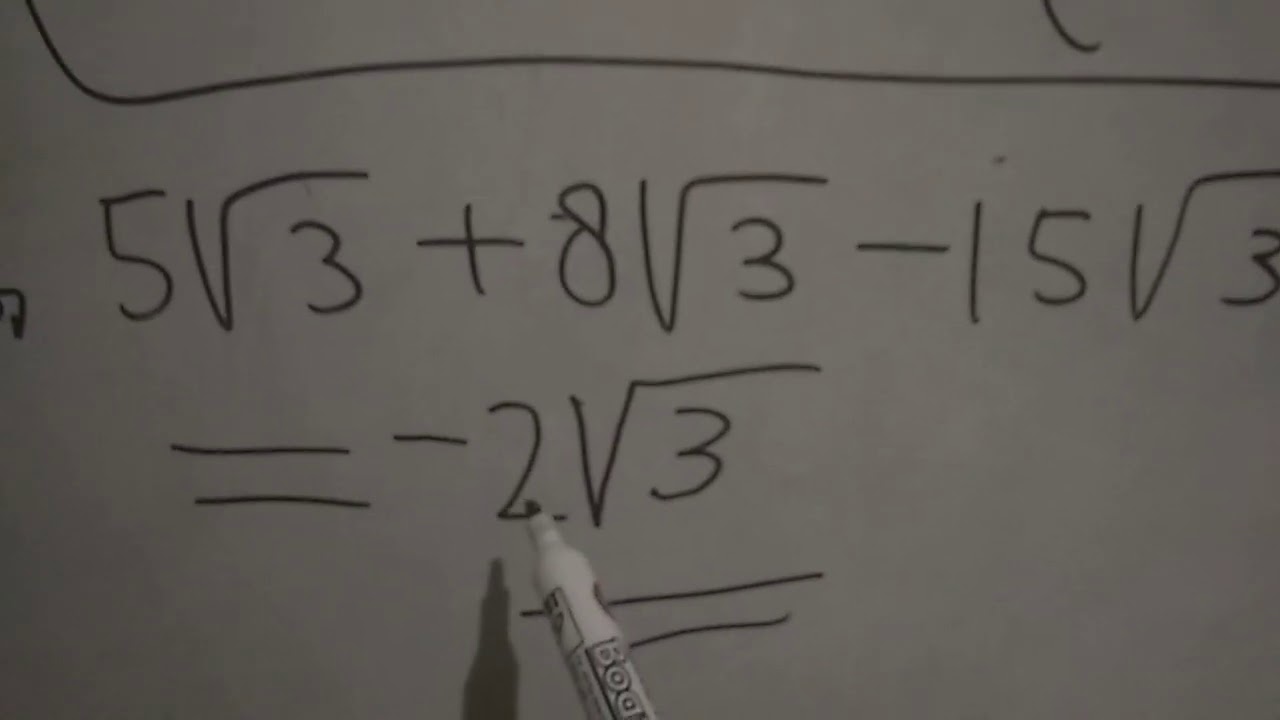 5√3 + 8√3 - 15√3
= -2√3
Boa